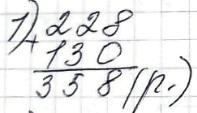 1) 228
+ 130
358 (р.)